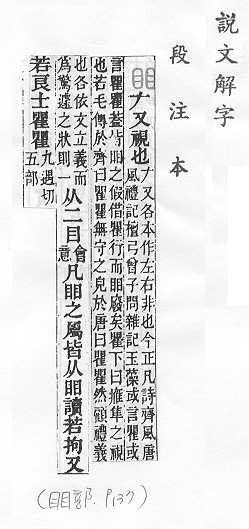 說文解字
段注本
䀠 𠂇又視也
𠂇又各本作左右非也今正凡詩齊風唐
風禮記檀弓曾子問雜記玉藻或言瞿或
言瞿瞿葢皆䀠之假借瞿行而䀠廢矣瞿下曰隼之視
也若毛傳於齊曰瞿瞿無守之皃於唐曰瞿瞿然顧禮義
也各依文立義而
爲驚遽之狀則一
从二目
會
意
凡䀠之屬皆从䀠讀若拘又
若良士瞿瞿
九遇切
五部
(目部. P137)